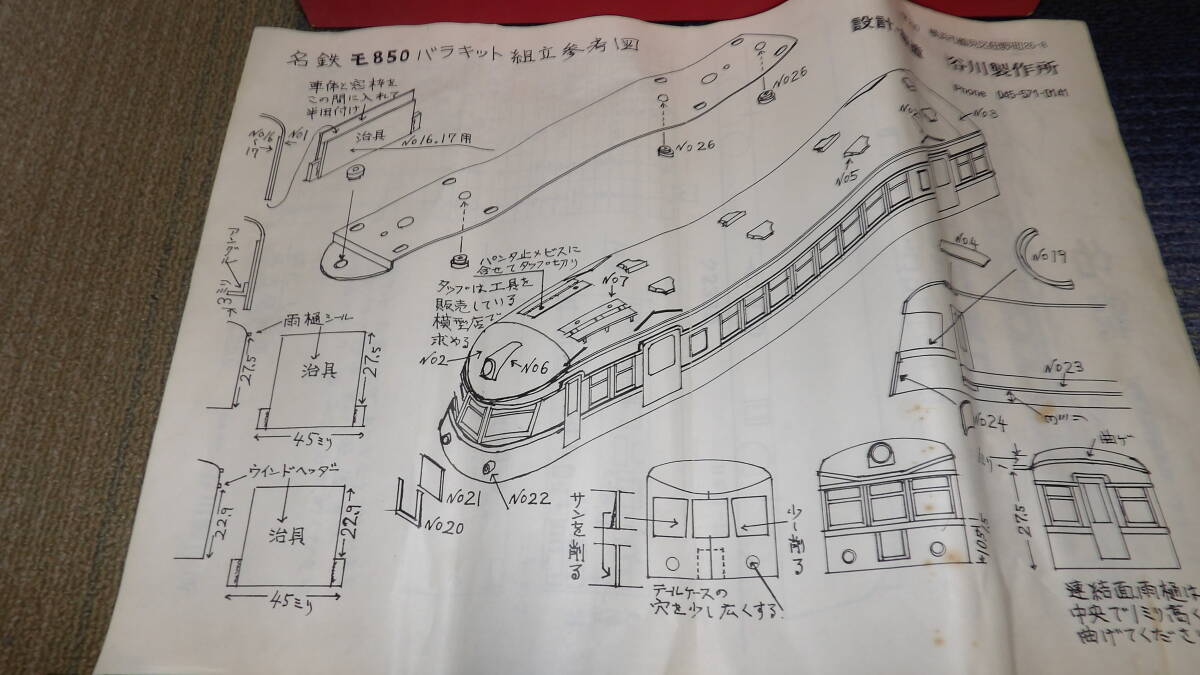 名鉄 モ850 バラキット 組立参考図
設計
谷川製作所
Phone 045-571-0141
車体と窓枠を
この間に入れて
半田付け
治具
No16.17用
No16
17
No1
No26
No26
No2
No3
No5
アングル
3ミリ
パンタ止メビスに
合せてタップ切り
タップは工具を
販売している
模型店で
求める
No7
No4
No19
雨樋シール
治具
27.5
27.5
45ミリ
No2
No6
No23
No24
ウインドヘッダー
治具
22.9
22.9
45ミリ
No21
No20
No22
サンを削る
少し削る
テールケースの
穴を少し広くする
10.5
曲ゲ
27.5
連結面雨樋は
中央で1ミリ高く
曲げてくださ